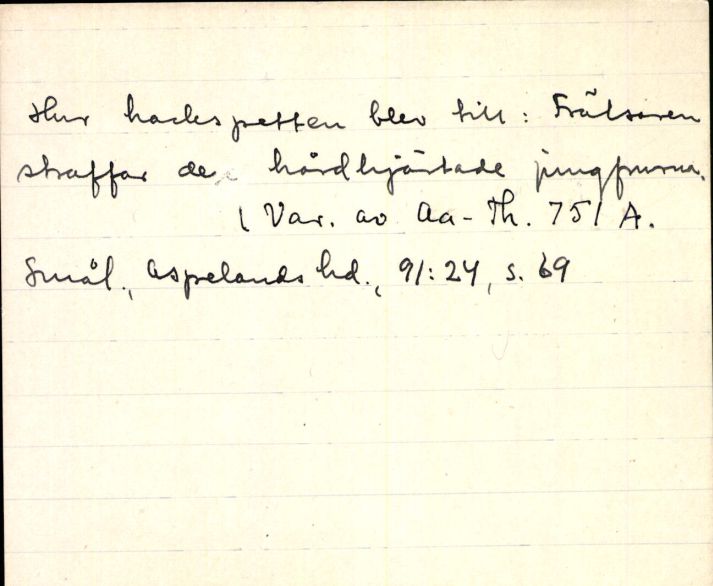 Hur hackspetten blev till: Frälsaren
straffar de hårdhjärtade jungfrurna.
( Var. av Aa-Th. 751 A.
Smål., Aspelands hd., 91:24, s. 69